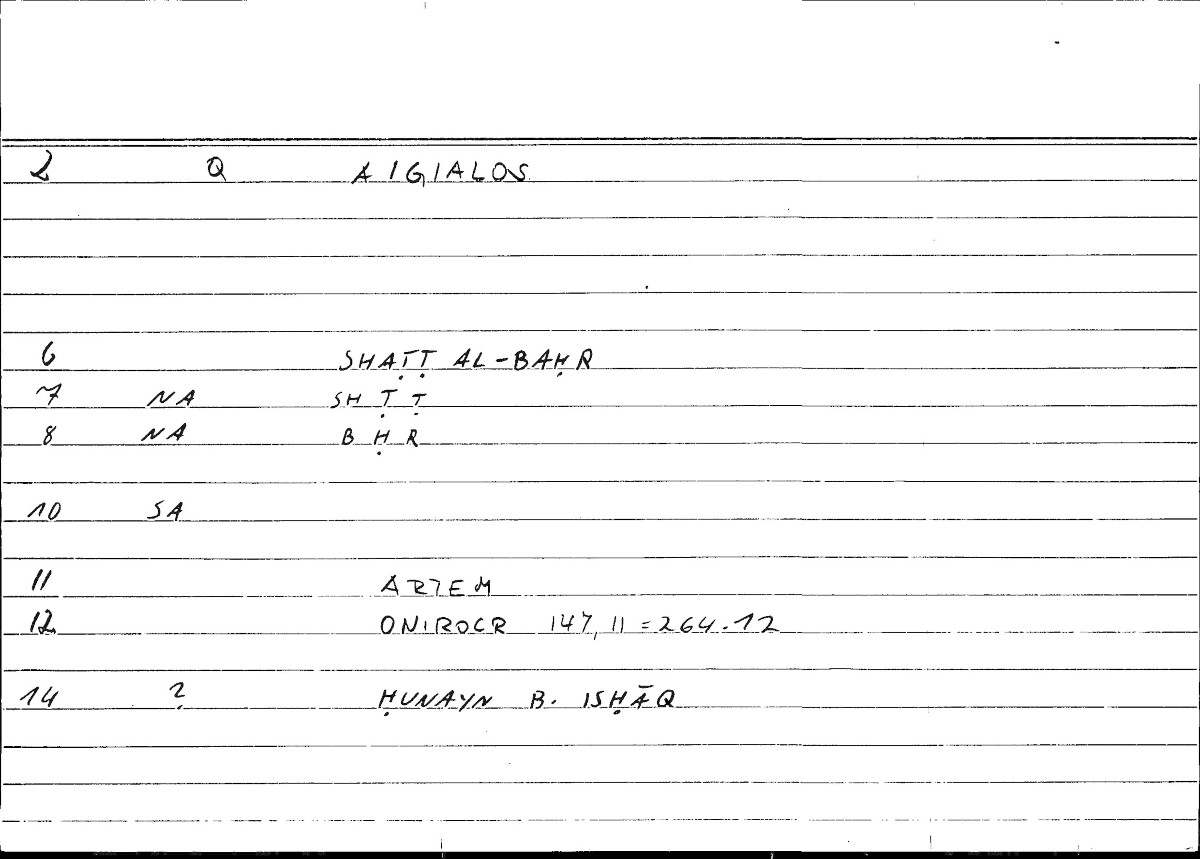 2 Q AIGIALOS
6 SHAṬṬ AL-BAḤR
7 NA SH Ṭ Ṭ
8 NA B Ḥ R
10 SA
11 ARTEM
12 ONIROCR 147,11=264.12
14 ? ḤUNAYN B. ISḤĀQ